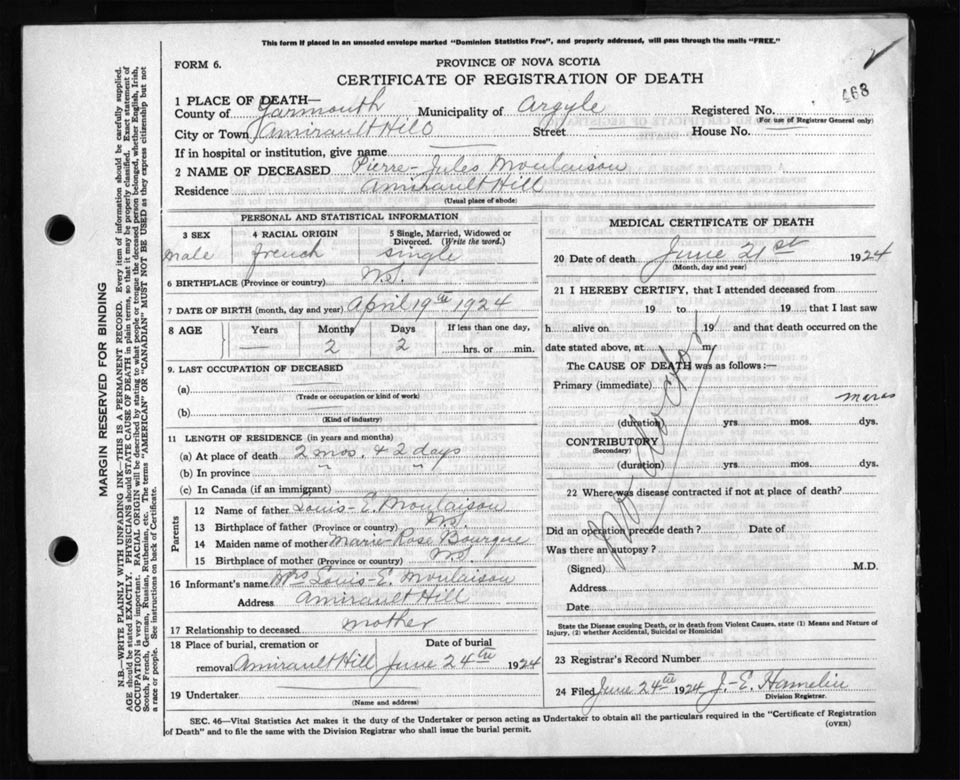 This form if placed in an unsealed envelope marked "Dominion Statistics Free", and properly addressed, will pass through the mails "FREE."
FORM 6.
PROVINCE OF NOVA SCOTIA
CERTIFICATE OF REGISTRATION OF DEATH
468
1 PLACE OF DEATH—
County of Yarmouth Municipality of Argyle Registered No.
(For use of Registrar General only)
City or Town Amirault Hill Street House No.
If in hospital or institution, give name
2 NAME OF DECEASED Pierre-Jules Moulaison
Residence Amirault Hill
(Usual place of abode)
PERSONAL AND STATISTICAL INFORMATION
3 SEX 4 RACIAL ORIGIN 5 Single, Married, Widowed or Divorced. (Write the word.)
male french single
6 BIRTHPLACE (Province or country) N.S.
7 DATE OF BIRTH (month, day and year) April 19th 1924
8 AGE Years Months Days If less than one day,
— 2 2 hrs. or min.
9. LAST OCCUPATION OF DECEASED
(a)
(Trade or occupation or kind of work)
(b)
(Kind of industry)
11 LENGTH OF RESIDENCE (in years and months)
(a) At place of death 2 mos. & 2 days
(b) In province
(c) In Canada (if an immigrant)
Parents
12 Name of father Louis-E. Moulaison
13 Birthplace of father (Province or country) N.S.
14 Maiden name of mother Marie-Rose Bourque
15 Birthplace of mother (Province or country) N.S.
16 Informant's name Mrs Louis-E. Moulaison
Address Amirault Hill
17 Relationship to deceased mother
18 Place of burial, cremation or Date of burial
removal Amirault Hill June 24th 1924
19 Undertaker
(Name and address)
MEDICAL CERTIFICATE OF DEATH
20 Date of death June 21st 1924
(Month, day and year)
21 I HEREBY CERTIFY, that I attended deceased from
19 to 19 that I last saw
h alive on 19 and that death occurred on the
date stated above, at m.
The CAUSE OF DEATH was as follows:—
Primary (immediate)
(duration) yrs. mos. dys.
CONTRIBUTORY
(Secondary)
(duration) yrs. mos. dys.
No doctor
22 Where was disease contracted if not at place of death?
Did an operation precede death ? Date of
Was there an autopsy ?
(Signed) M.D.
Address
Date
State the Disease causing Death, or in death from Violent Causes, state (1) Means and Nature of
Injury, (2) whether Accidental, Suicidal or Homicidal
23 Registrar's Record Number
24 Filed June 24th 1924 J.-E. Hamelin
Division Registrar.
SEC. 46—Vital Statistics Act makes it the duty of the Undertaker or person acting as Undertaker to obtain all the particulars required in the "Certificate of Registration
of Death" and to file the same with the Division Registrar who shall issue the burial permit.
(OVER)
MARGIN RESERVED FOR BINDING
N.B.—WRITE PLAINLY WITH UNFADING INK—THIS IS A PERMANENT RECORD. Every item of information should be carefully supplied.
AGE should be stated EXACTLY. PHYSICIANS should STATE CAUSE OF DEATH in plain terms, so that it may be properly classified. Exact statement of
OCCUPATION is very important. RACIAL ORIGIN will be described by stating to what people or tongue the deceased person belonged, whether English, Irish,
Scotch, French, German, Russian, Ruthenian, etc. The terms "AMERICAN" OR "CANADIAN" MUST NOT BE USED as they express citizenship but not
a race or people. See instructions on back of Certificate.